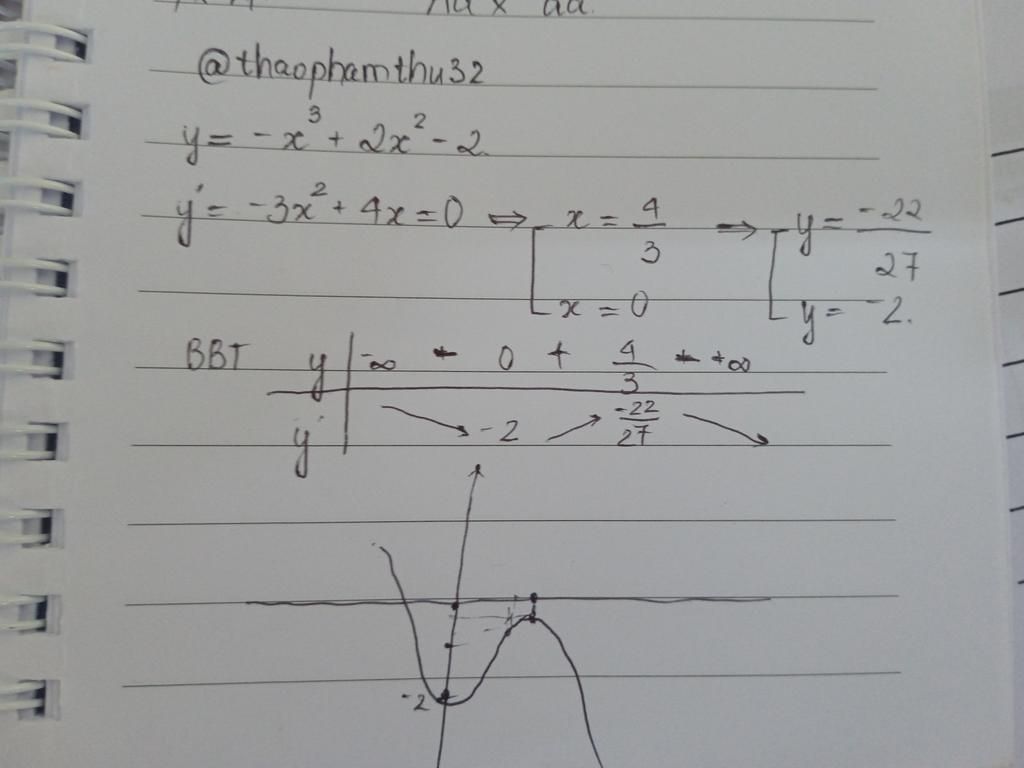 @thaophamthu32
y = -x³ + 2x² - 2.
y' = -3x² + 4x = 0 ⇔ [ x = 4/3 ⇒ [ y = -22/27
x = 0 y = -2.
BBT y | -∞ - 0 + 4/3 - +∞
y' | ↘ -2 ↗ -22/27 ↘
-2